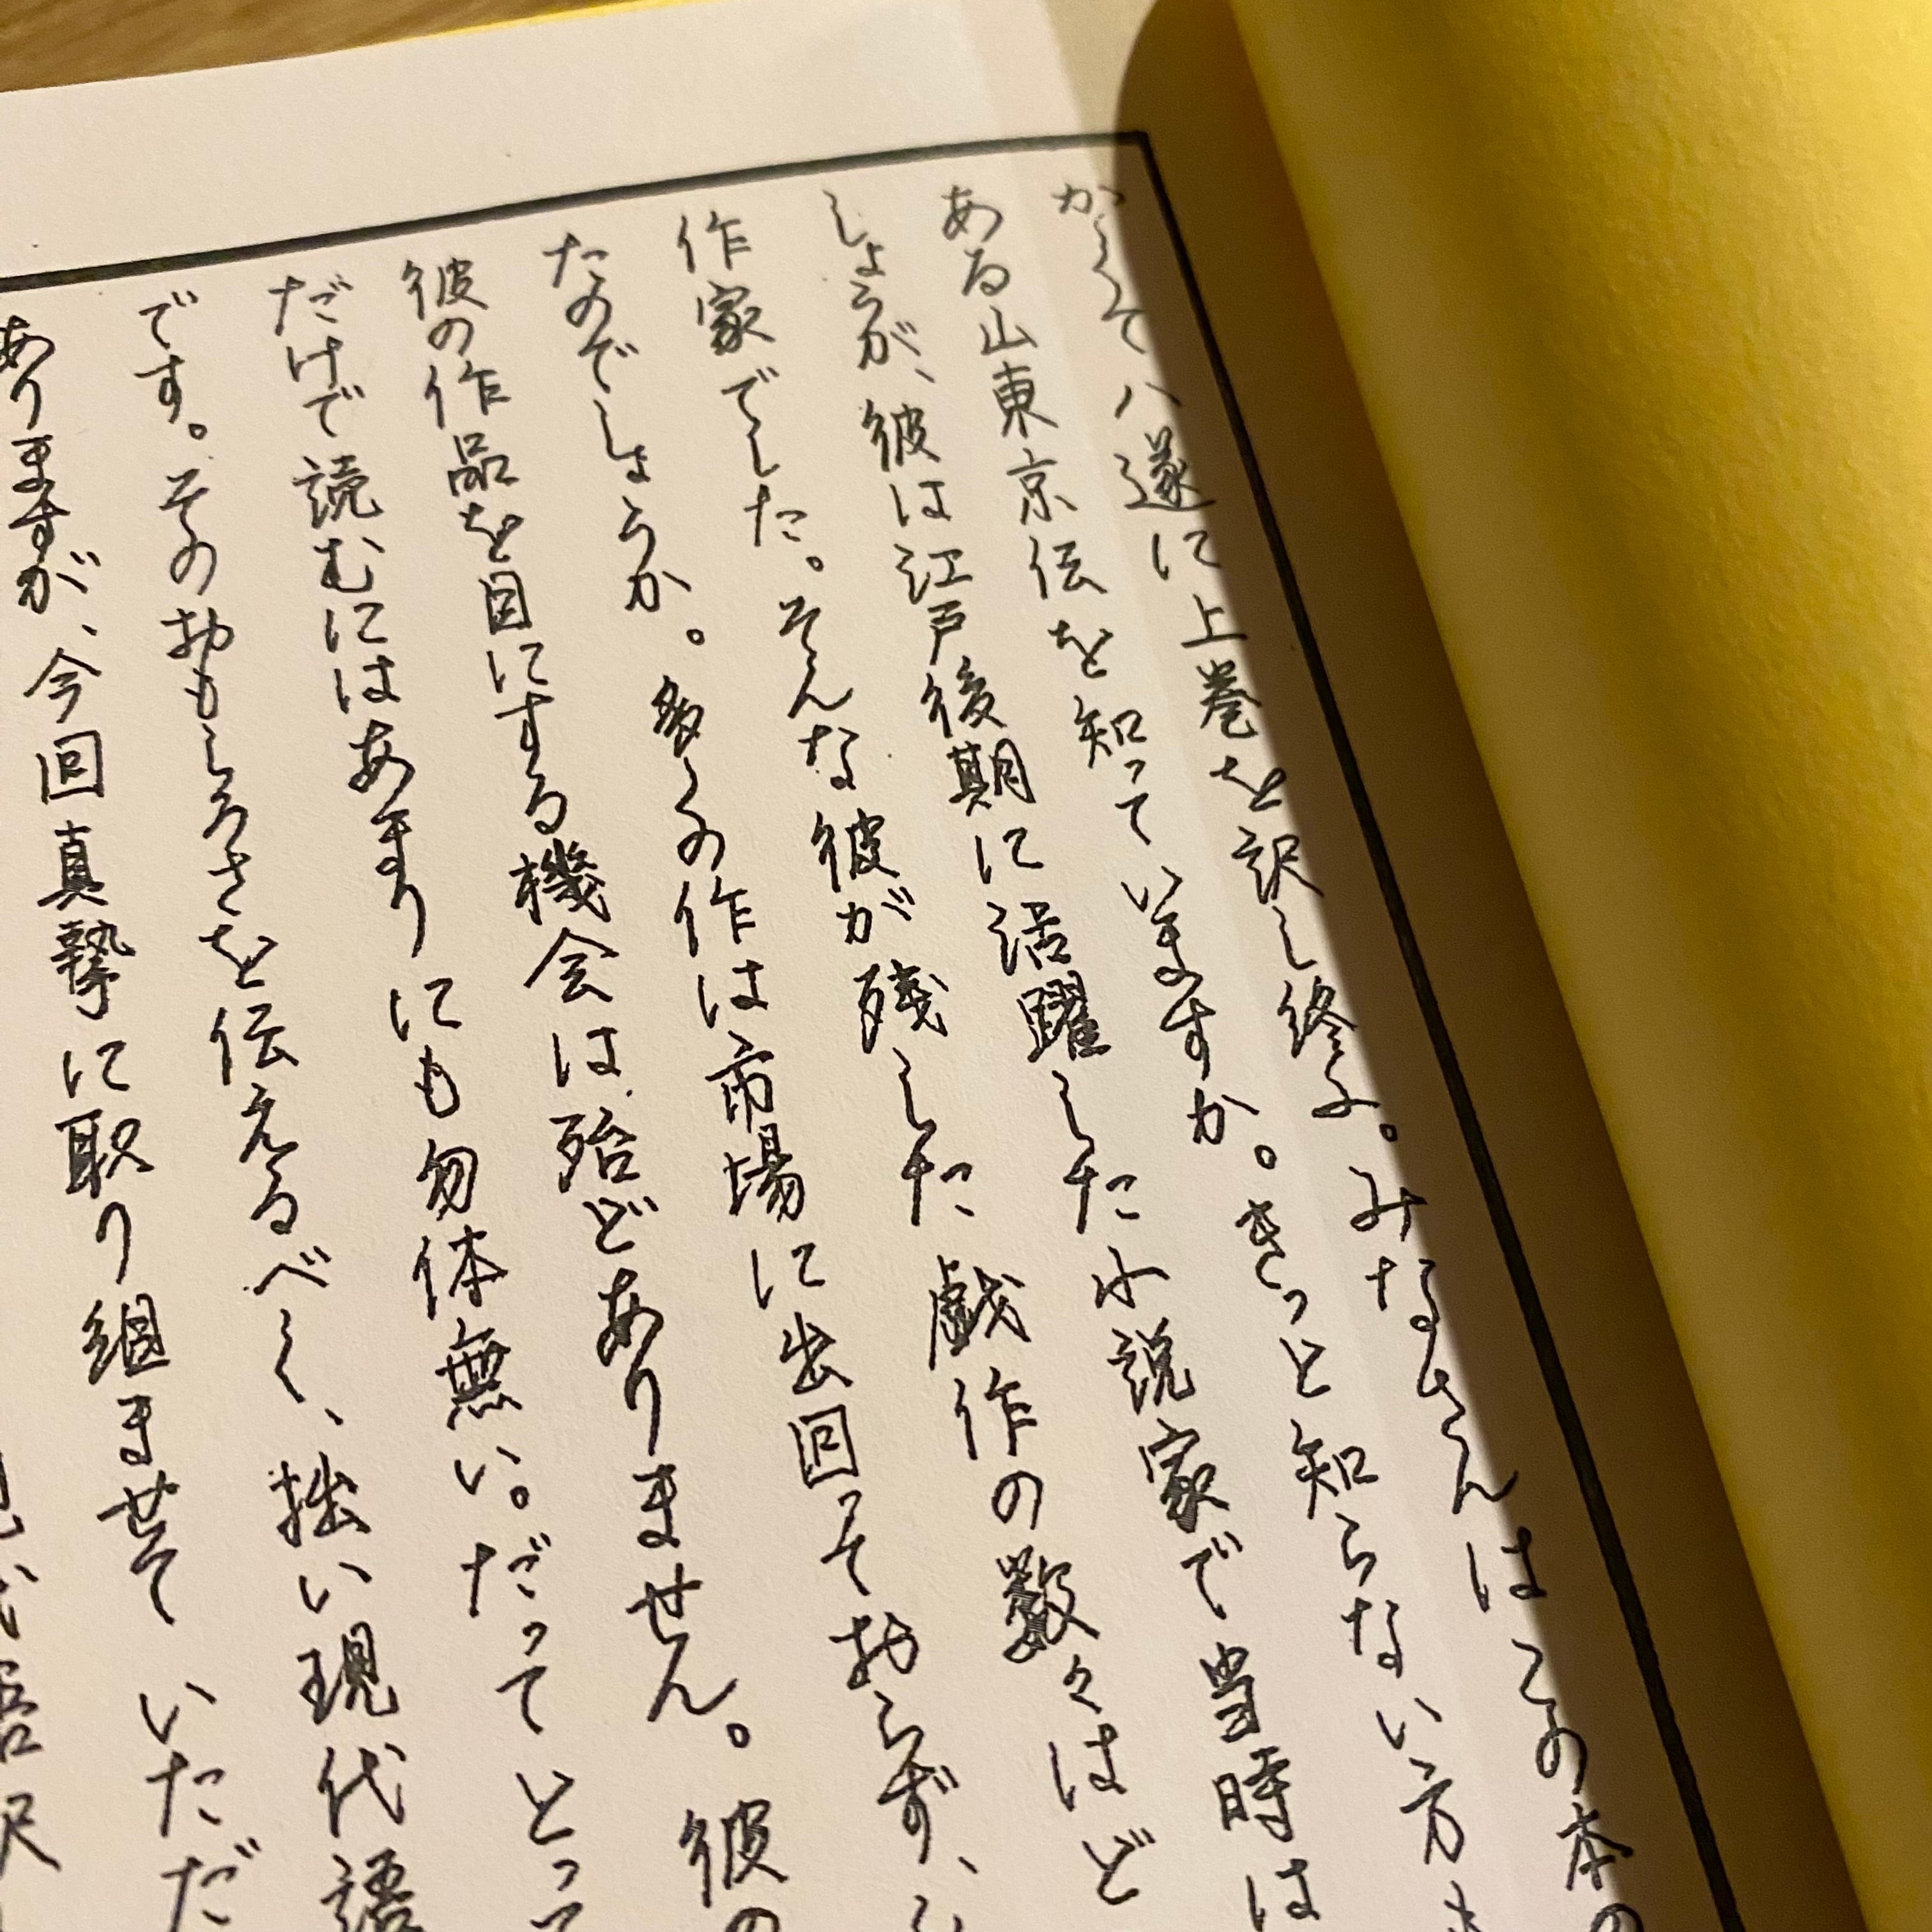 かくて八遂に上巻を訳し終ふ。みなさんはこの本の
ある山東京伝を知っていますか。きっと知らない方も
しょうが、彼は江戸後期に活躍した小説家で当時は
作家でした。そんな彼が残した戯作の数々はど
たのでしょうか。多くの作は市場に出回っておらず、
彼の作品を目にする機会は殆どありません。彼の
だけで読むにはあまりにも勿体無い。だってとっ
です。そのおもしろさを伝えるべく、拙い現代語
ありますが、今回真摯に取り組ませていただ